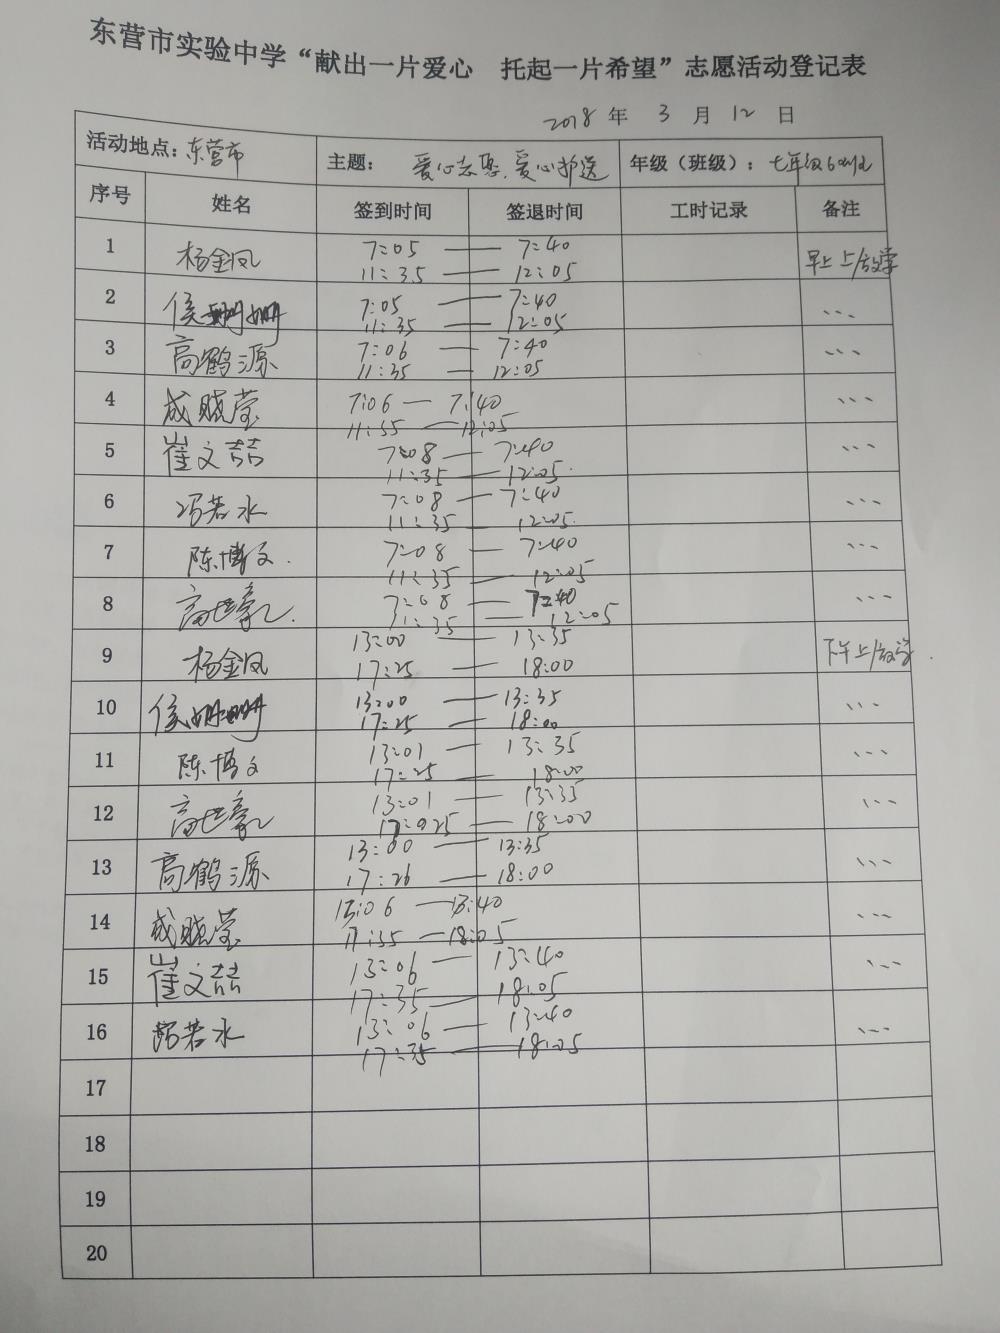 东营市实验中学“献出一片爱心 托起一片希望”志愿活动登记表
2018年 3 月 12 日
活动地点：东营市 主题： 爱心志愿、爱心护送 年级（班级）：七年级6
序号 姓名 签到时间 签退时间 工时记录 备注
1 杨金凤 7:05 — 7:40 早上上/放学
11:35 — 12:05
2 侯姗姗 7:05 — 7:40 、、、
11:35 — 12:05
3 高鹤源 7:06 — 7:40 、、、
11:35 — 12:05
4 成晓莹 7:06 — 7:40 、、、
11:35 — 12:05
5 崔文喆 7:08 — 7:40 、、、
11:35 — 12:05
6 冯若水 7:08 — 7:40 、、、
11:35 — 12:05
7 陈博文 7:08 — 7:40 、、、
11:35 — 12:05
8 高世豪 7:08 — 7:40 、、、
11:35 — 12:05
9 杨金凤 13:00 — 13:35 下午上/放学
17:25 — 18:00
10 侯姗姗 13:00 — 13:35 、、、
17:25 — 18:00
11 陈博文 13:01 — 13:35 、、、
17:25 — 18:00
12 高世豪 13:01 — 13:35 、、、
17:25 — 18:00
13 高鹤源 13:00 — 13:35 、、、
17:26 — 18:00
14 成晓莹 13:06 — 13:40 、、、
17:35 — 18:05
15 崔文喆 13:06 — 13:40 、、、
17:35 — 18:05
16 冯若水 13:06 — 13:40 、、、
17:35 — 18:05
17
18
19
20